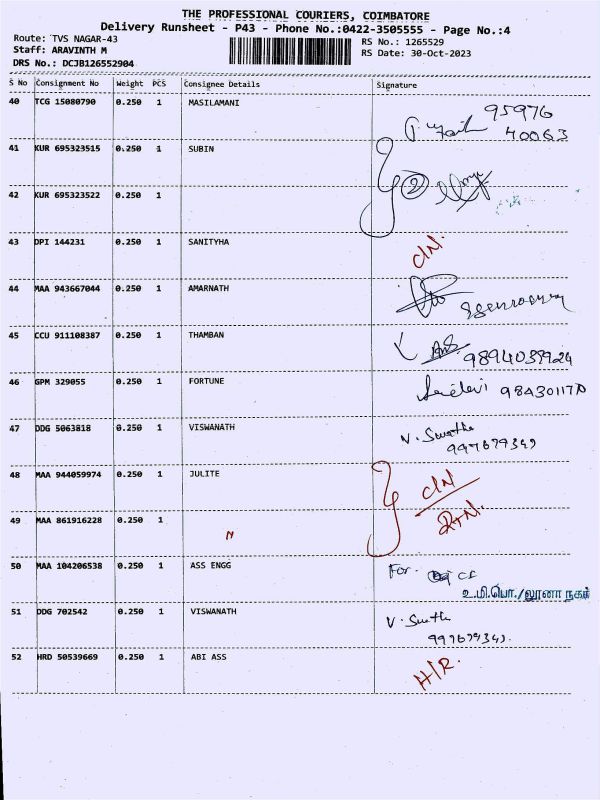 THE PROFESSIONAL COURIERS, COIMBATORE
Delivery Runsheet - P43 - Phone No.:0422-3505555 - Page No.:4
Route: TVS NAGAR-43
RS No.: 1265529
Staff: ARAVINTH M
RS Date: 30-Oct-2023
DRS No.: DCJB126552904
S No Consignment No Weight PCS Consignee Details Signature
40 TCG 15080790 0.250 1 MASILAMANI
95976
40063
41 KUR 695323515 0.250 1 SUBIN
2
42 KUR 695323522 0.250 1
43 DPI 144231 0.250 1 SANITYHA
C/N.
44 MAA 943667044 0.250 1 AMARNATH
45 CCU 911108387 0.250 1 THAMBAN
9894039924
46 GPM 329055 0.250 1 FORTUNE
Sridevi
47 DDG 5063818 0.250 1 VISWANATH
V. Swathi
48 MAA 944059974 0.250 1 JULITE
C/N
49 MAA 861916228 0.250 1
N
RTN.
50 MAA 104206538 0.250 1 ASS ENGG
For.
உ.மி.பொ./லூனா நகர்
51 DDG 702542 0.250 1 VISWANATH
V. Swathi
52 HRD 50539669 0.250 1 ABI ASS
H/R.